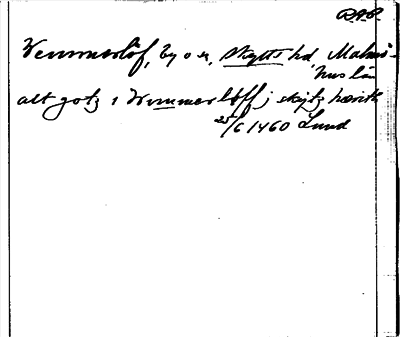 D.A.P.
Vemmerlöf, by o sn, Skytts hd, Malmö-
hus län
alt gotz i Wemmerløff j skytz hæreth
25/6 1460 Lund